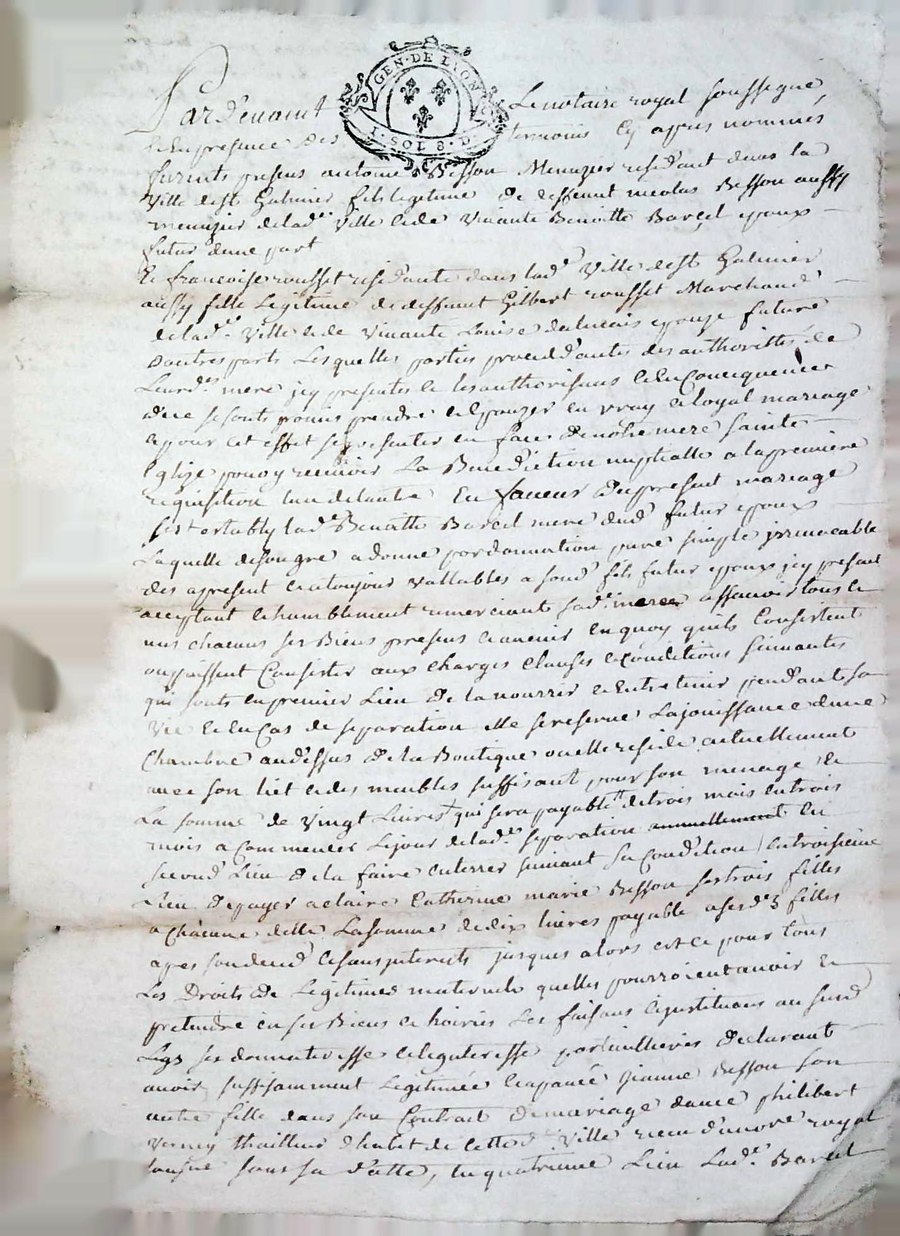 GEN. DE LION
1. SOL 8. D.
Pardevant Le notaire royal soussigné
et en presence des temoins cy apres nommés
furents presens antoine Besson Menuzier residant dans la
Ville de st Galmier fils legitime de deffunt nicolas Besson aussy
menuzier de lad.e Ville et de Vivante Benoitte Barcel epoux
futur d'une part
Et francoise rousset residante dans lad.e Ville de st Galmier
aussy fille Legitime de deffunt Gilbert rousset Marchand
de lad.e Ville et de Vivante Louise epouze future
d'autres parts Lesquelles parties procedd'antes des authorittés de
Leurd.s mere jcy presentes et les authorisans et en Consequence
de ce se sonts promis prendre et Epouzer en vray et loyal mariage
et pour cet effet se presenter en face de nottre mere sainte
Eglize pour y recevoir La Benediction nuptialle a la premiere
requisition l'un de lautre En faveur du present mariage
s'est estably lad.e Benoitte Barcel mere dud.t futur epoux
Laquelle de son gre a donné par donnation pure simple jrrevocable
des a present et a toujour vallables a son d.t fils futur epoux jcy present
acceptant et humblement remerciant sad.e mere a sçavoir tous et
uns chacuns ses Biens presens et avenir en quoy qu'ils Consistent
ou puissent Consister aux charges clauses et Conditions suivantes
qui sonts en premier Lieu de la nourrir et Entretenir pendant sa
Vie et en Cas de separation elle se reserve La jouissance d'une
Chambre au dessus de la Boutique ou elle reside actuellement
avec son liet et des meubles suffisant pour son menage et
La somme de vingt Livres qui sera payable de trois mois en trois
mois a commencer le jour de lad.e separation annuellement En
second Lieu de la faire enterrer suivant sa Condition, en troisieme
Lieu de payer a claire Catherine marie Besson ses trois filles
a chacune delle La somme de dix livres payable a ses d.es 3 filles
apres son deced et sans jnterests jusques alors et ce pour tous
Les Droits de Legitimes maternels quelles pourroient avoir et
pretendre en ses Biens et hoiries Les faisans et jnstituans au surd
Legs ses donnateresse et legateresse particullieres declarant
avoir suffisamment Legitimée et apanée jeanne Besson son
autre fille dans son Contrait de mariage d'avec philibert
Verney thailleur d'habit de cette d. Ville receu d'avant royal
sous sa d'atte, En quatrieme Lieu Lad.e Barcel